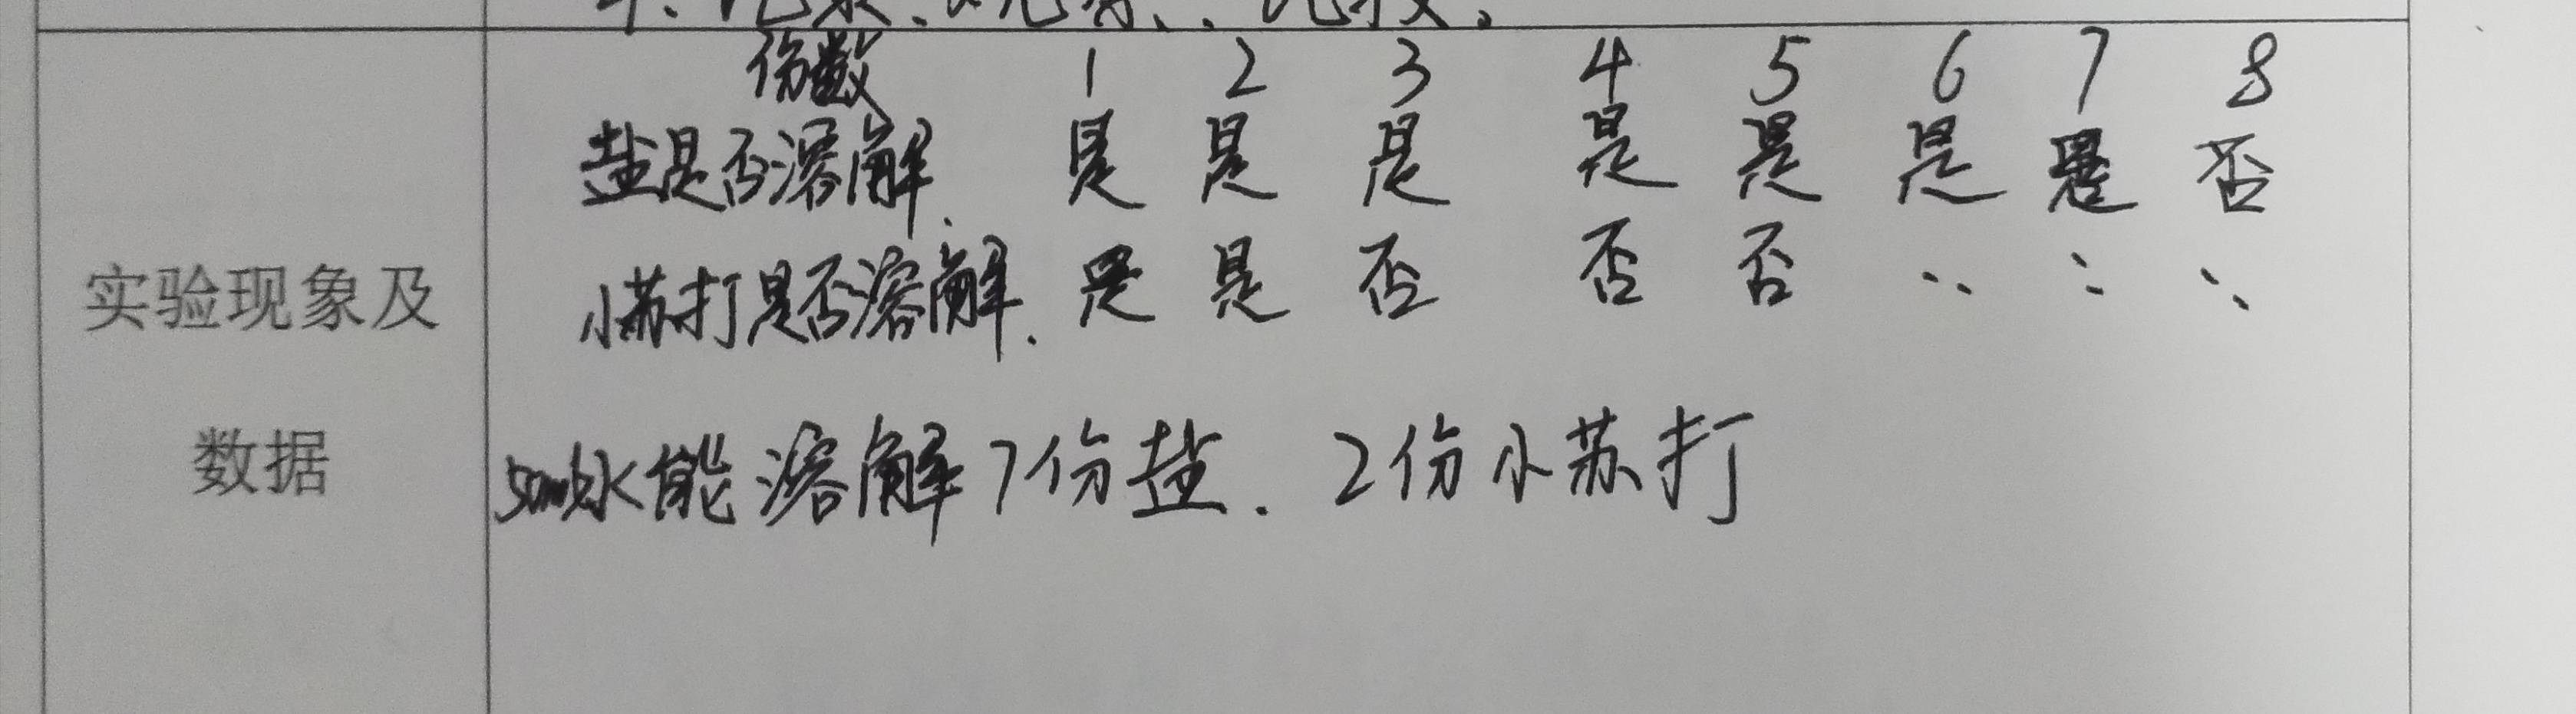 份数 1 2 3 4 5 6 7 8
盐是否溶解. 是 是 是 是 是 是 是 否
小苏打是否溶解. 是 是 否 否 否 ⋱ : ⋱
实验现象及
数据
50mL水能溶解7份盐. 2份小苏打